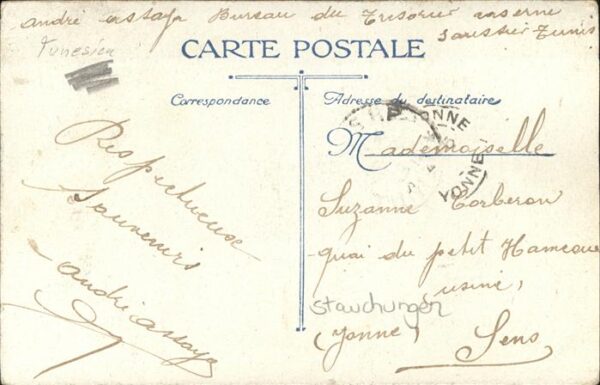 andré assaya Bureau du Trésorié caserne
saussié Tunis
Tunesien
CARTE POSTALE
Correspondance
Adresse du destinataire
Respectueuse
Souvenirs
andré assaya
YONNE
YONNE
Mademoiselle
Suzanne Corberon
quai du petit Hameau
usine,
Stauchungen
(Yonne) Sens